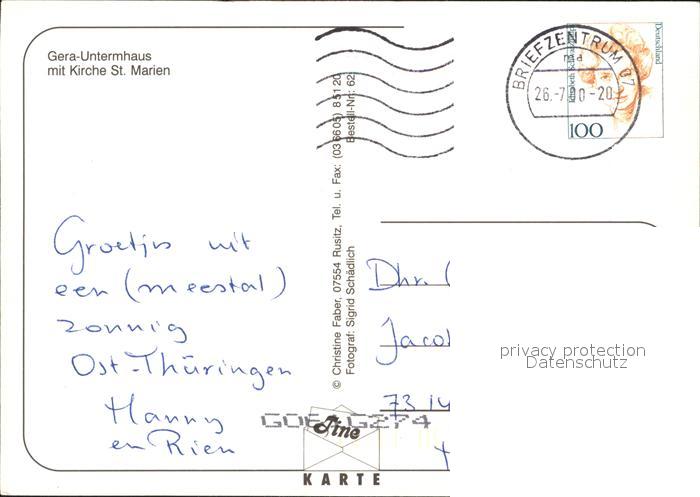 Gera-Untermhaus
mit Kirche St. Marien
BRIEFZENTRUM 07
ma
26.-7.00-20
Deutschland
100
© Christine Faber, 07554 Rusitz, Tel. u. Fax: (036605) 85120
Fotograf: Sigrid Schädlich Bestell-Nr. 62
Groetjes uit
een (meestal)
zonnig
Ost-Thüringen
Hanny
en Rien
Dhr.
Jaco
73
privacy protection
Datenschutz
Fine
KARTE